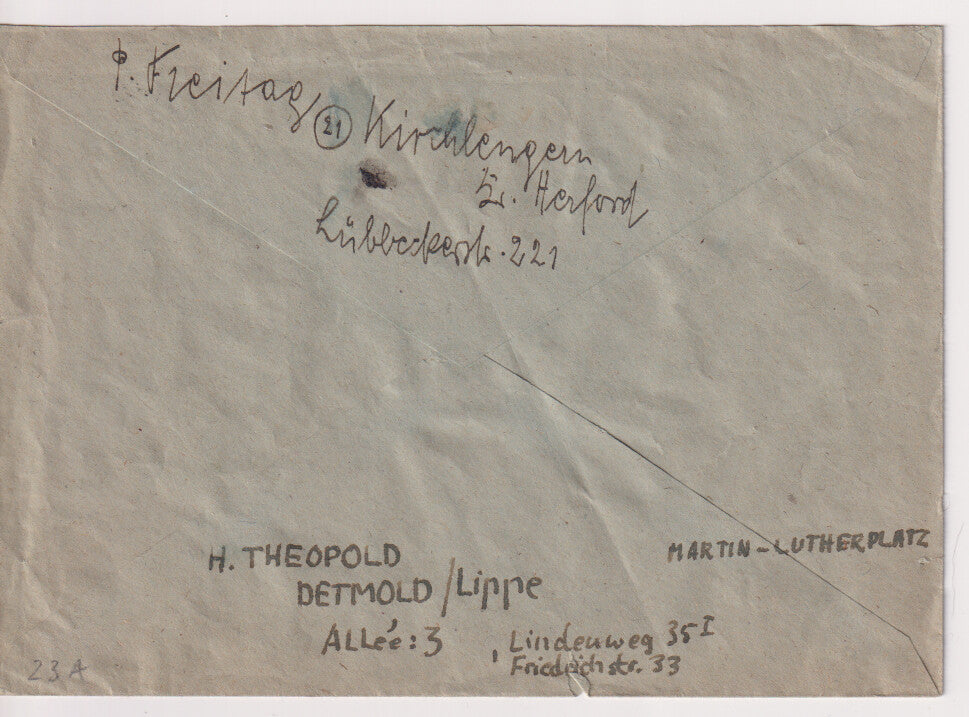 P. Freitag
(21) Kirchlengern
Kr. Herford
Lübbeckerstr. 221
MARTIN-LUTHERPLATZ
H. THEOPOLD
DETMOLD / Lippe
ALLéé: 3
Lindenweg 35 I
Friedrichstr. 33
23A